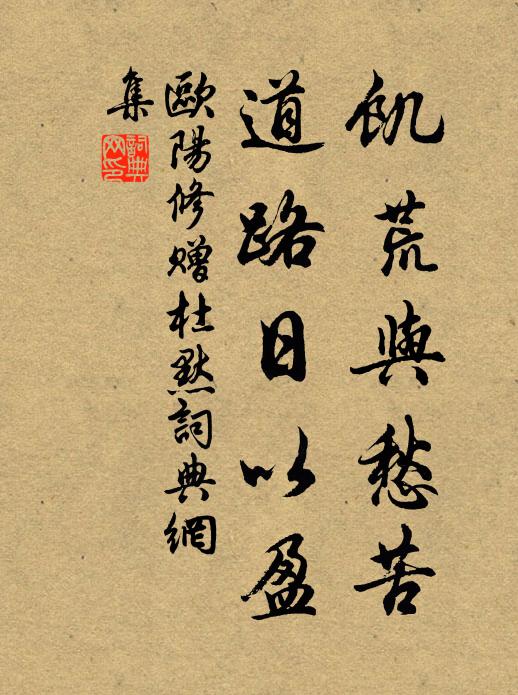 飢荒與愁苦
道路日以盈
歐陽修贈杜默詞典網
集
詞典
网印